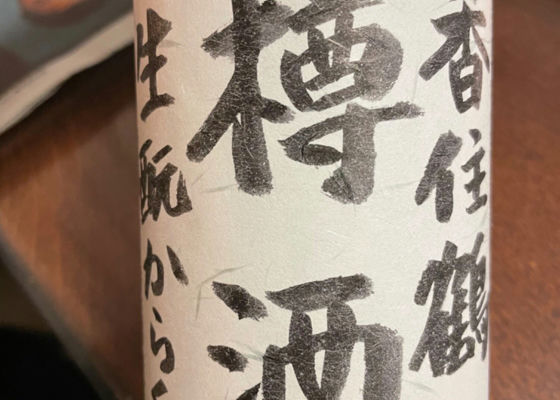 香住鶴
樽酒
生酛から